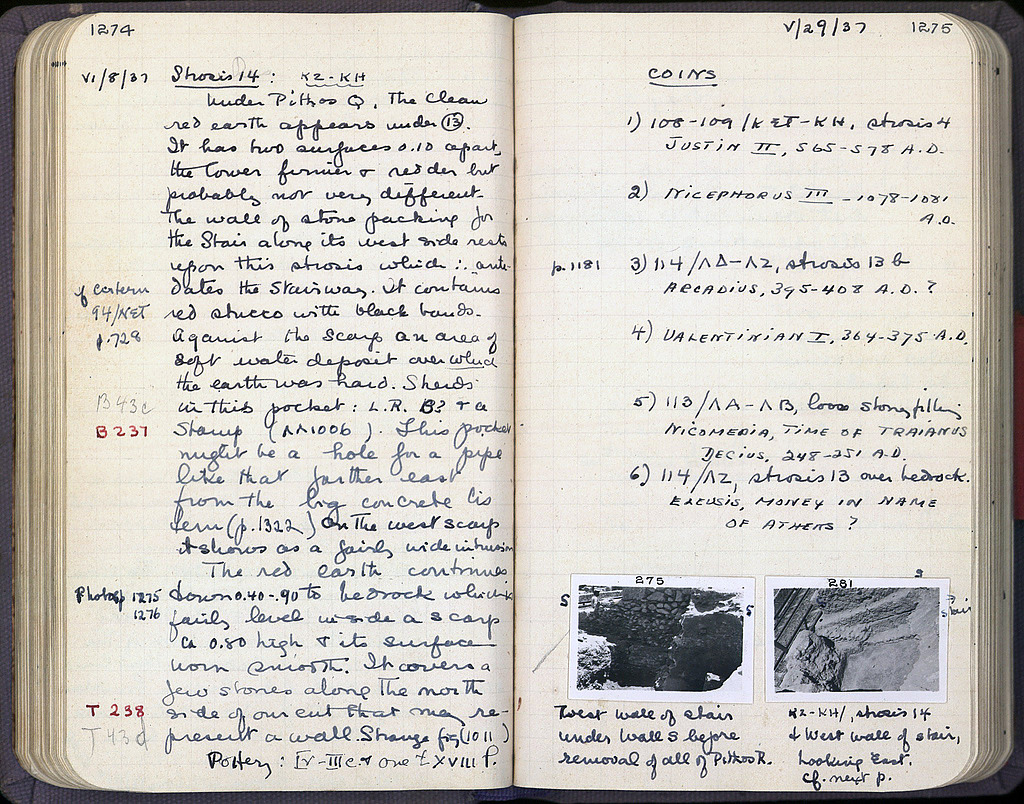 1274
VI/8/37 Strosis 14 : KZ-KH
Under Pithos Q, the clean
red earth appears under 13.
It has two surfaces 0.10 apart,
the lower firmer & redder but
probably not very different.
The wall of stone packing for
the Stair along its west side rests
upon this strosis which ∴ ante-
dates the Stairway. It contains
red stucco with black bands.
cf cistern
94/KET
p. 728
Against the scarp an area of
soft water deposit over which
the earth was hard. Sherds
in this pocket: L.R. B? & a
B 43c
B 237
Stamp (ΛΛ1006). This pocket
might be a hole for a pipe
like that farther east
from the big concrete cis
tern (p. 1322) On the west scarp
it shows as a fairly wide intrusion
The red earth continues
Photos p 1275
1276
down 0.40-.90 to bedrock which is
fairly level inside a scarp
ca 0.80 high & its surface
worn smooth. It covers a
few stones along the north
T 238
T 43d
side of our cut that may re-
present a wall. Strange fig (1011)
Pottery: IV-III c & one f. XVIII f.
V/29/37 1275
COINS
1) 108-109/KET-KH, strosis 4
JUSTIN II, 565-578 A.D.
2) NICEPHORUS III - 1078-1081
A.D.
p. 1181 3) 114/ΛΔ-ΛZ, strosis 13 b
ARCADIUS, 395-408 A.D.?
4) VALENTINIAN I, 364-375 A.D.
5) 113/ΛA-ΛB, loose stony filling
NICOMEDIA, TIME OF TRAIANUS
DECIUS, 248-251 A.D.
6) 114/ΛZ, strosis 13 over bedrock.
ELEUSIS, MONEY IN NAME
OF ATHENS?
275
S S
West wall of stair
under wall S before
removal of all of Pithos R.
281
S
stair
KZ-KH/, strosis 14
& West wall of stair,
Looking East.
cf. next p.